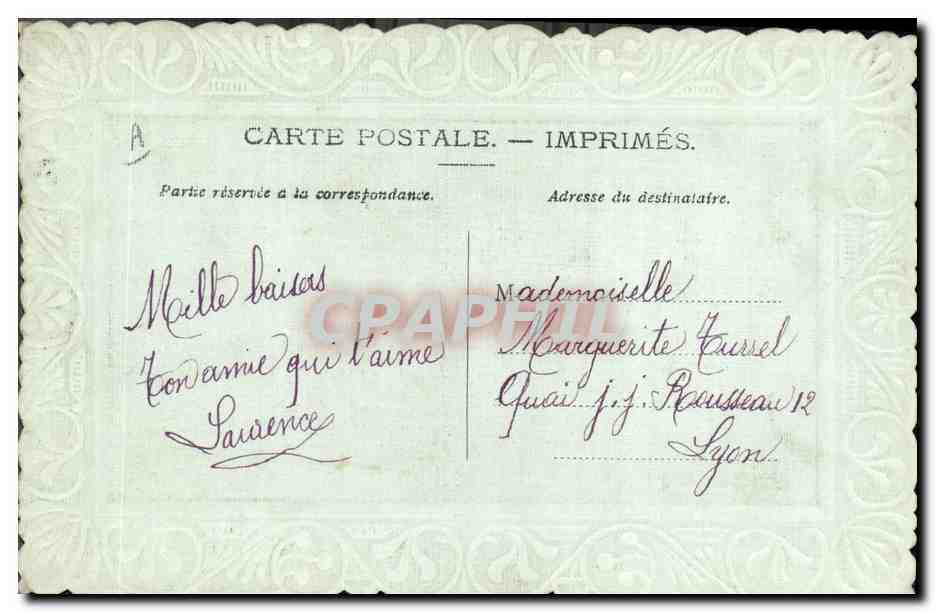 A
CARTE POSTALE. — IMPRIMÉS.
Partie réservée à la correspondance.
Adresse du destinataire.
Mille baisers
Ton amie qui t'aime
Laurence
Mademoiselle
Marguerite Tursel
Quai j. j. Rousseau 12
Lyon
CPAPHIL